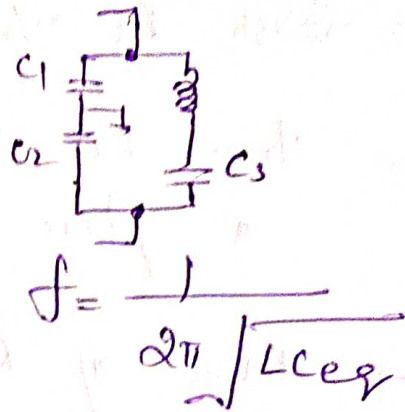 C1
C2
C3
f = 1 / 2π √LCeq